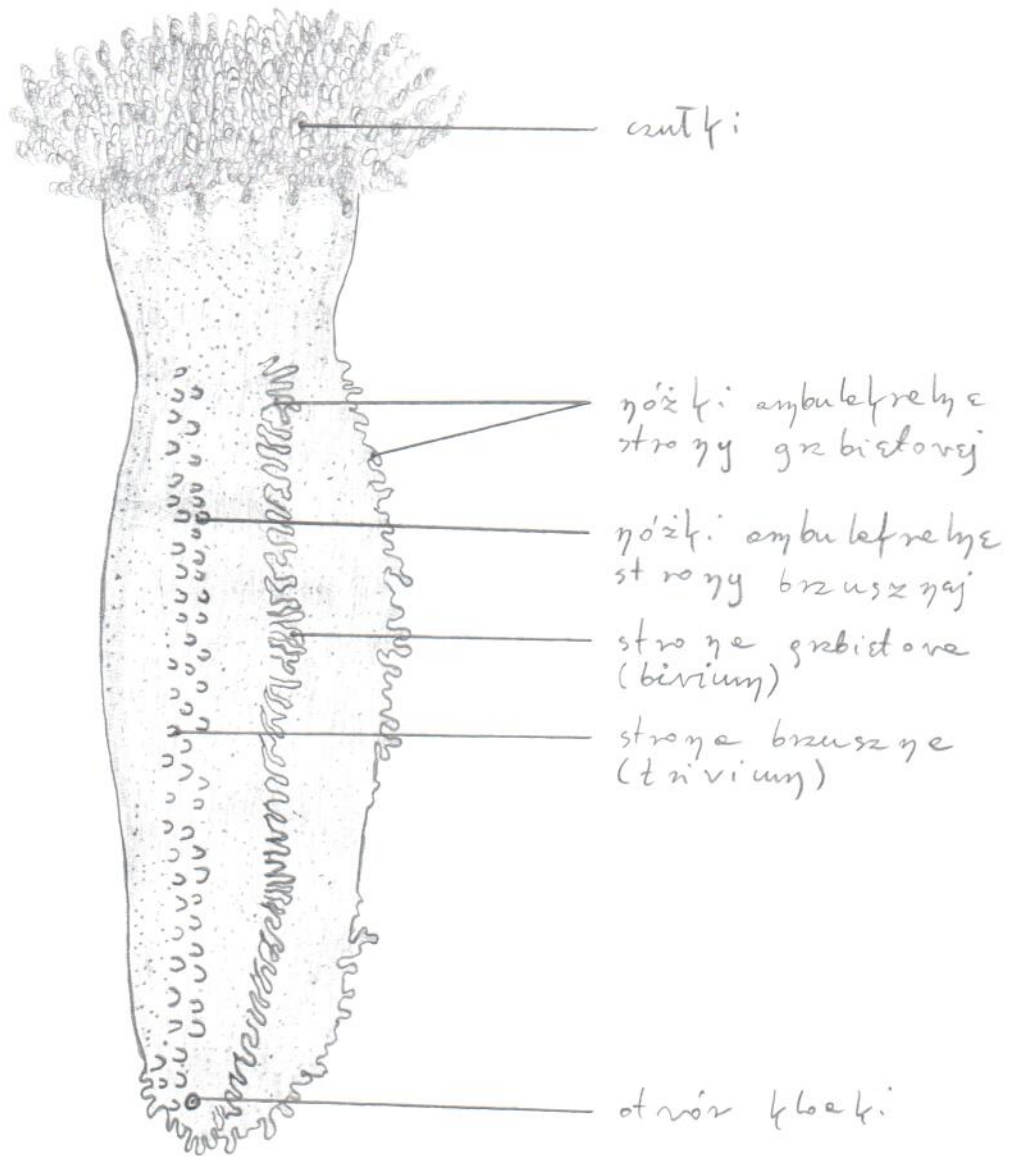 czułki
nóżki ambulakralne
strony grzbietowej
nóżki ambulakralne
strony brzusznej
strona grzbietowa
(bivium)
strona brzuszna
(trivium)
otwór kloaki